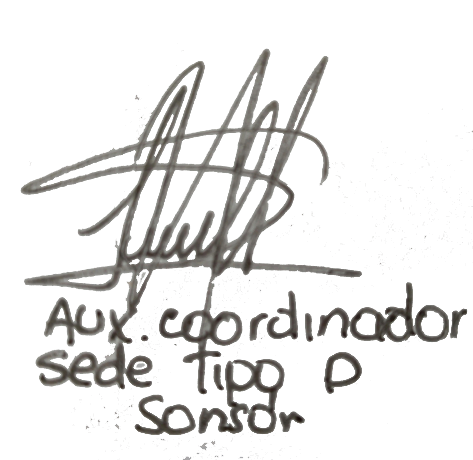 Aux. coordinador
sede Tipo D
Sonsor